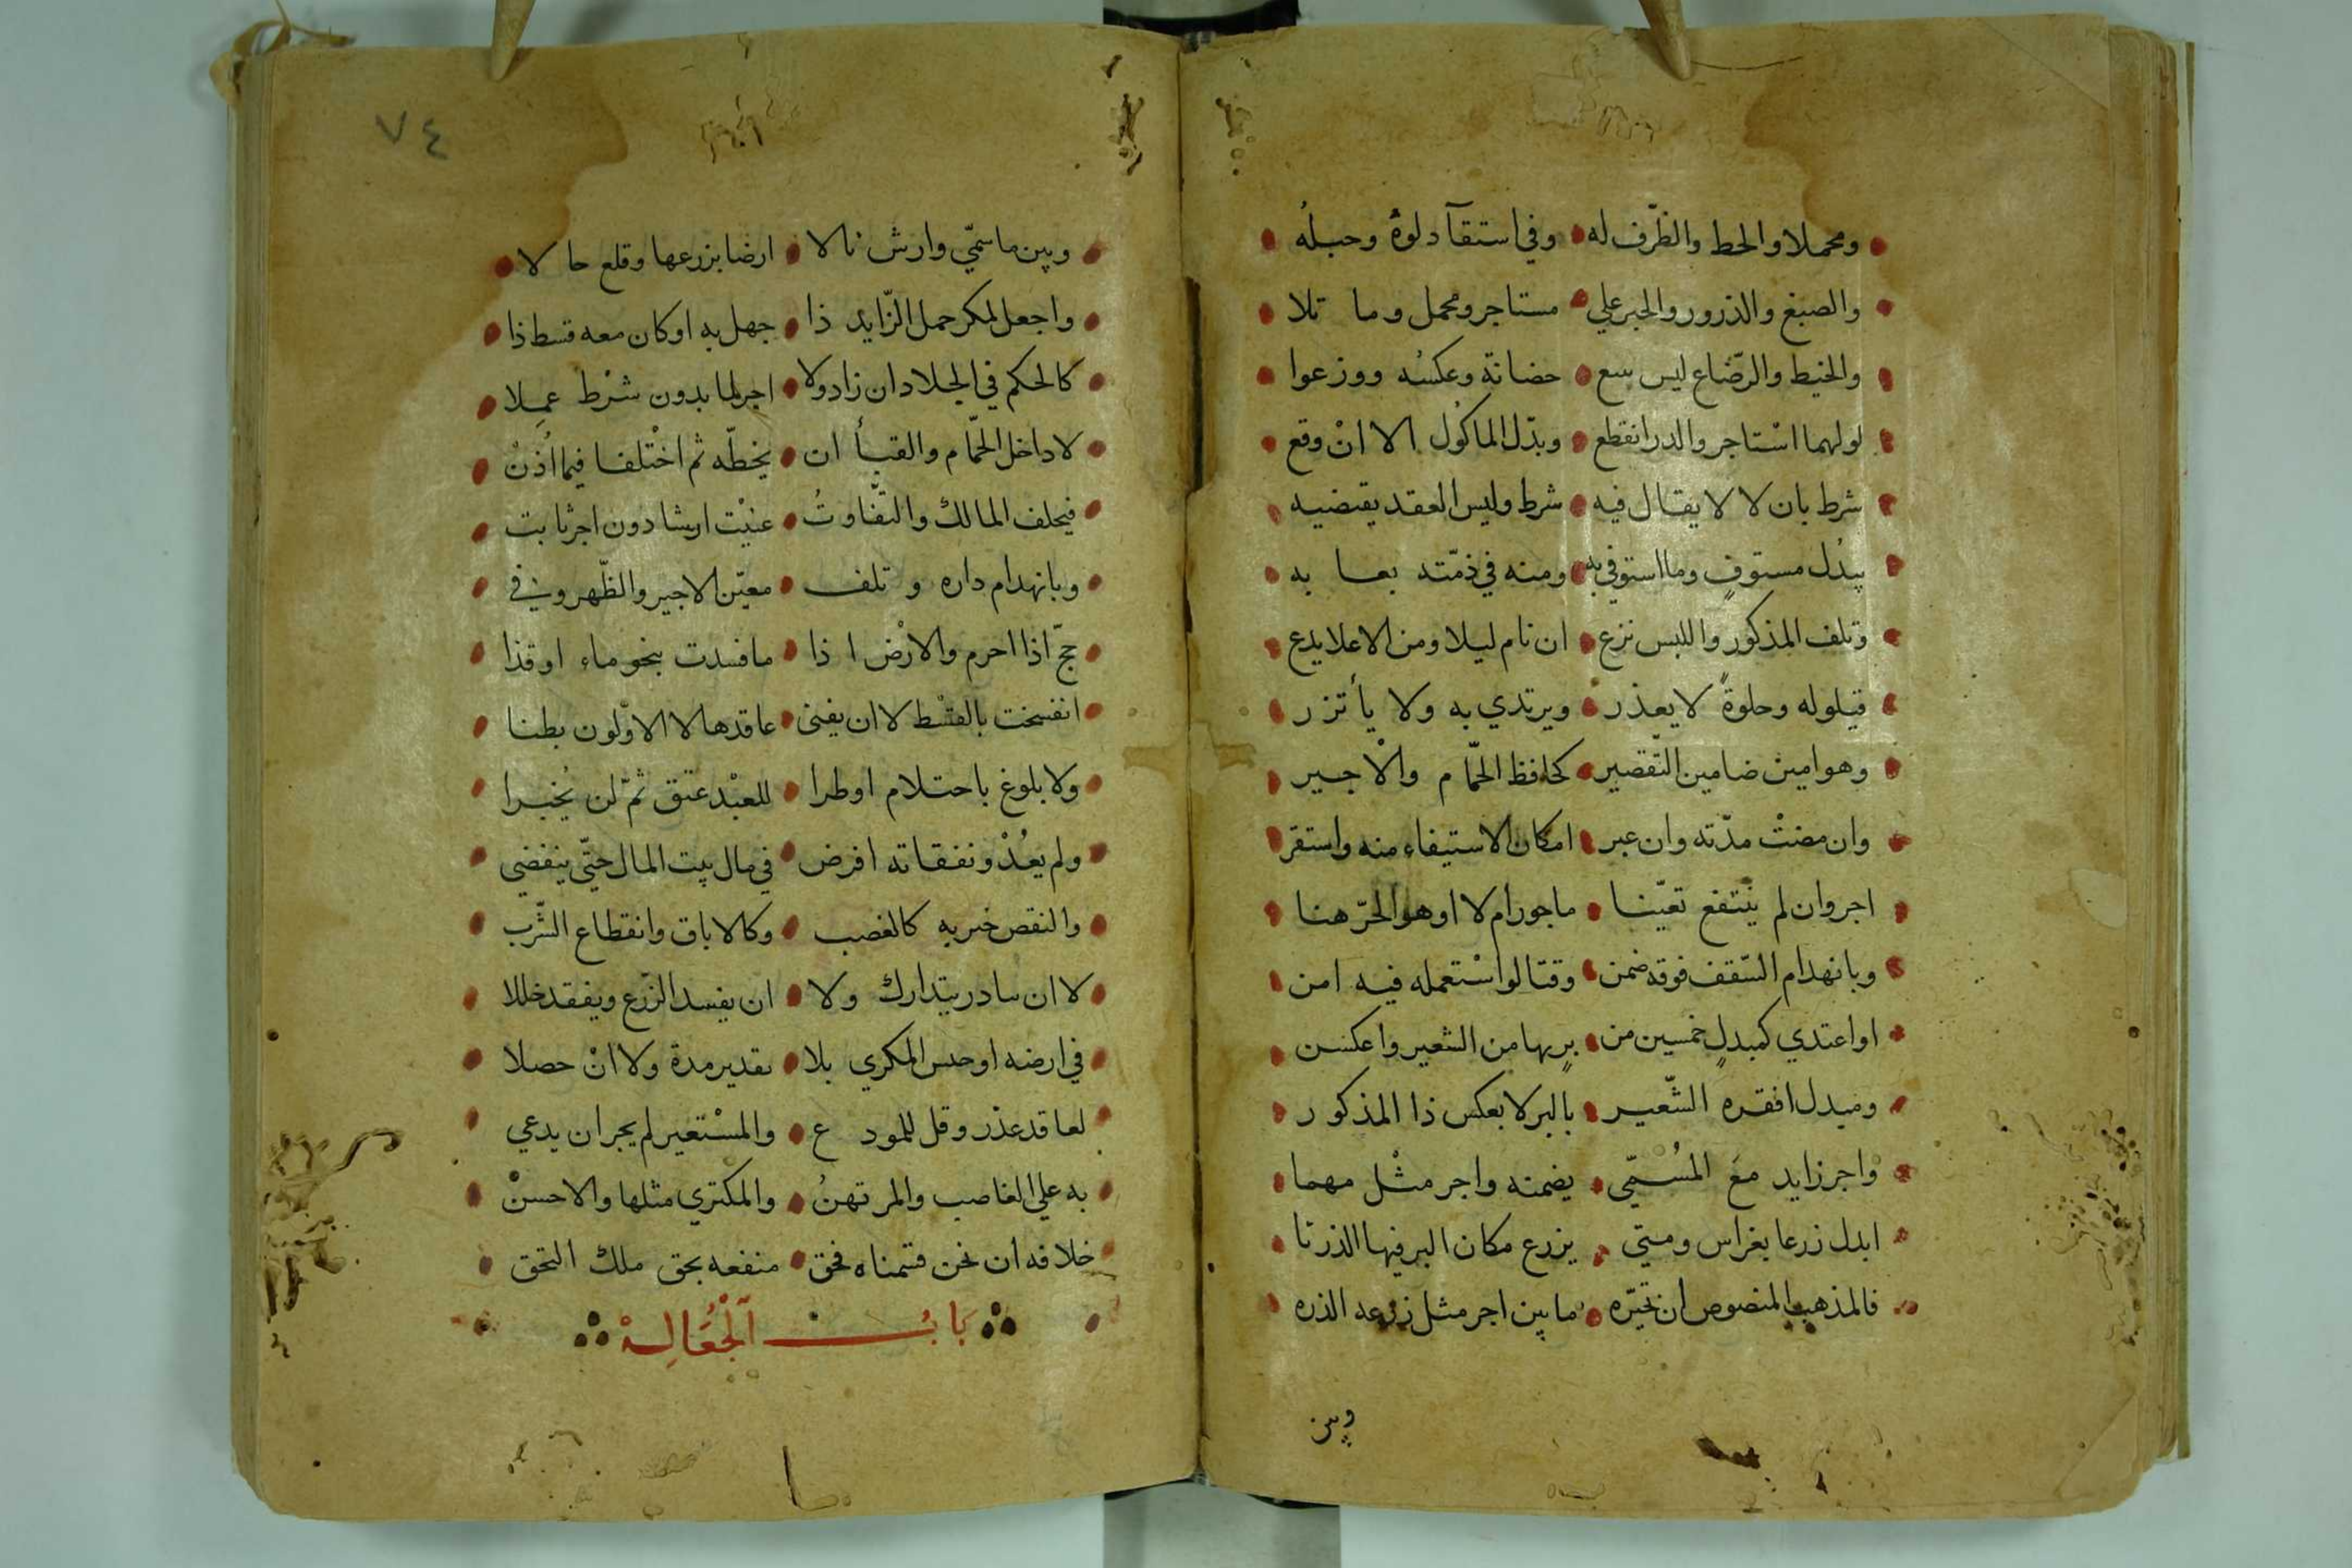 ومحملا والحط والظرف له وفي استقآ دلوه وحبله
والصبغ والذرور والحبر علي مستاجر ومحمل وما تلا
والخيط والرضاع ليس يتبع حضانة وعكسه ووزعوا
لو لهما استاجر والدر انقطع وبدل الماكول الا ان وقع
شرط بان لا لا يقال فيه شرط وليس العقد يقتضيه
يبدل مستوف وما استوفي به ومنه في ذمته بعا به
وتلف المذكور واللبس نزع ان نام ليلا ومن الاعلا يدع
قيلوله وخلوة لا يعذر ويرتدي به ولا يأتزر
وهو امين ضامن التقصير كحافظ الحمام والاجير
وان مضت مدته وان عبر امكان الاستيفاء منه واستقر
اجر وان لم ينتفع تعينا ماجور ام لا او هو الحر هنا
وبانهدام السقف فوقه ضمن وقتا لو استعمله فيه امن
او اعتدي كمبدل خمسين من بر بها من الشعير واعكسن
ومبدل اقفزه الشعير بالبر لا بعكس ذا المذكور
واجر زايد مع المسمي يضمنه واجر مثل مهما
ابدل زرعا بغراس ومتي يزرع مكان البر فيها الذرتا
فالمذهب المنصوص ان نخيره ما بين اجر مثل زرعه الذره
وبين
٧٤
وبين ما سمي وارش نالا ارضا بزرعها وقلع حالا
واجعل لمكر حمل الزايد ذا جهل به او كان معه قسط ذا
كالحكم في الجلاد ان زاد ولا اجر لما بدون شرط عملا
لا داخل الحمام والقبأ ان يخطه ثم اختلفا فيما اذن
فيحلف المالك والتفاوت عنيت ارشا دون اجر ثابت
وبانهدام داره وتلف معين الاجير والظهر وفي
حج اذا احرم والارض اذا ما فسدت بنحو ماء او قذا
انفسخت بالقسط لا ان يفني عاقدها لا الاولون بطنا
ولا بلوغ باحتلام او طرا للعبد عتق ثم لن يخيرا
ولم يعد ونفقاته افرض في مال بيت المال حتي ينقضي
والنقص خير به كالغصب وكالاباق وانقطاع الشرب
لا ان بادر بتدارك ولا ان يفسد الزرع ويفقد خللا
في ارضه او حبس المكري بلا تقدير مدة ولا ان حصلا
لعاقد عذر وقل للمودع والمستعير لم يجز ان يدعي
به علي الغاصب والمرتهن والمكتري مثلها والاحسن
خلافه ان نحن قسمناه فحق منفعه بحق ملك التحق
باب الجعالة